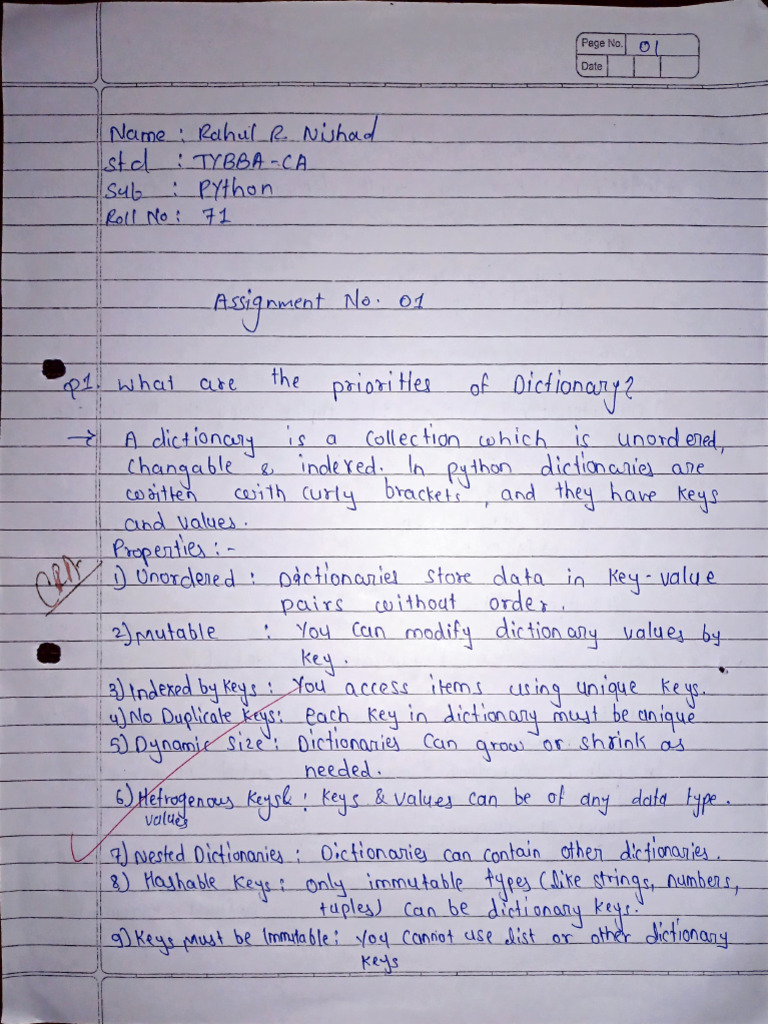 Page No. 01
Date
Name : Rahul R. Nishad
Std : TYBBA-CA
Sub : Python
Roll No : 71
Assignment No. 01
Q1. What are the priorities of Dictionary?
→ A dictionary is a collection which is unordered,
changable & indexed. In python dictionaries are
written with curly brackets, and they have keys
and values.
Properties :-
1) Unordered : Dictionaries store data in key-value
pairs without order.
2) Mutable : You can modify dictionary values by
key.
3) Indexed by Keys : You access items using unique keys.
4) No Duplicate Keys: each key in dictionary must be unique
5) Dynamic Size : Dictionaries can grow or shrink as
needed.
6) Hetrogenous Keys& : Keys & values can be of any data type.
values
7) Nested Dictionaries : Dictionaries can contain other dictionaries.
8) Hashable Keys : only immutable types (like strings, numbers,
tuples) can be dictionary keys.
9) Keys must be Immutable : You cannot use list or other dictionary
keys